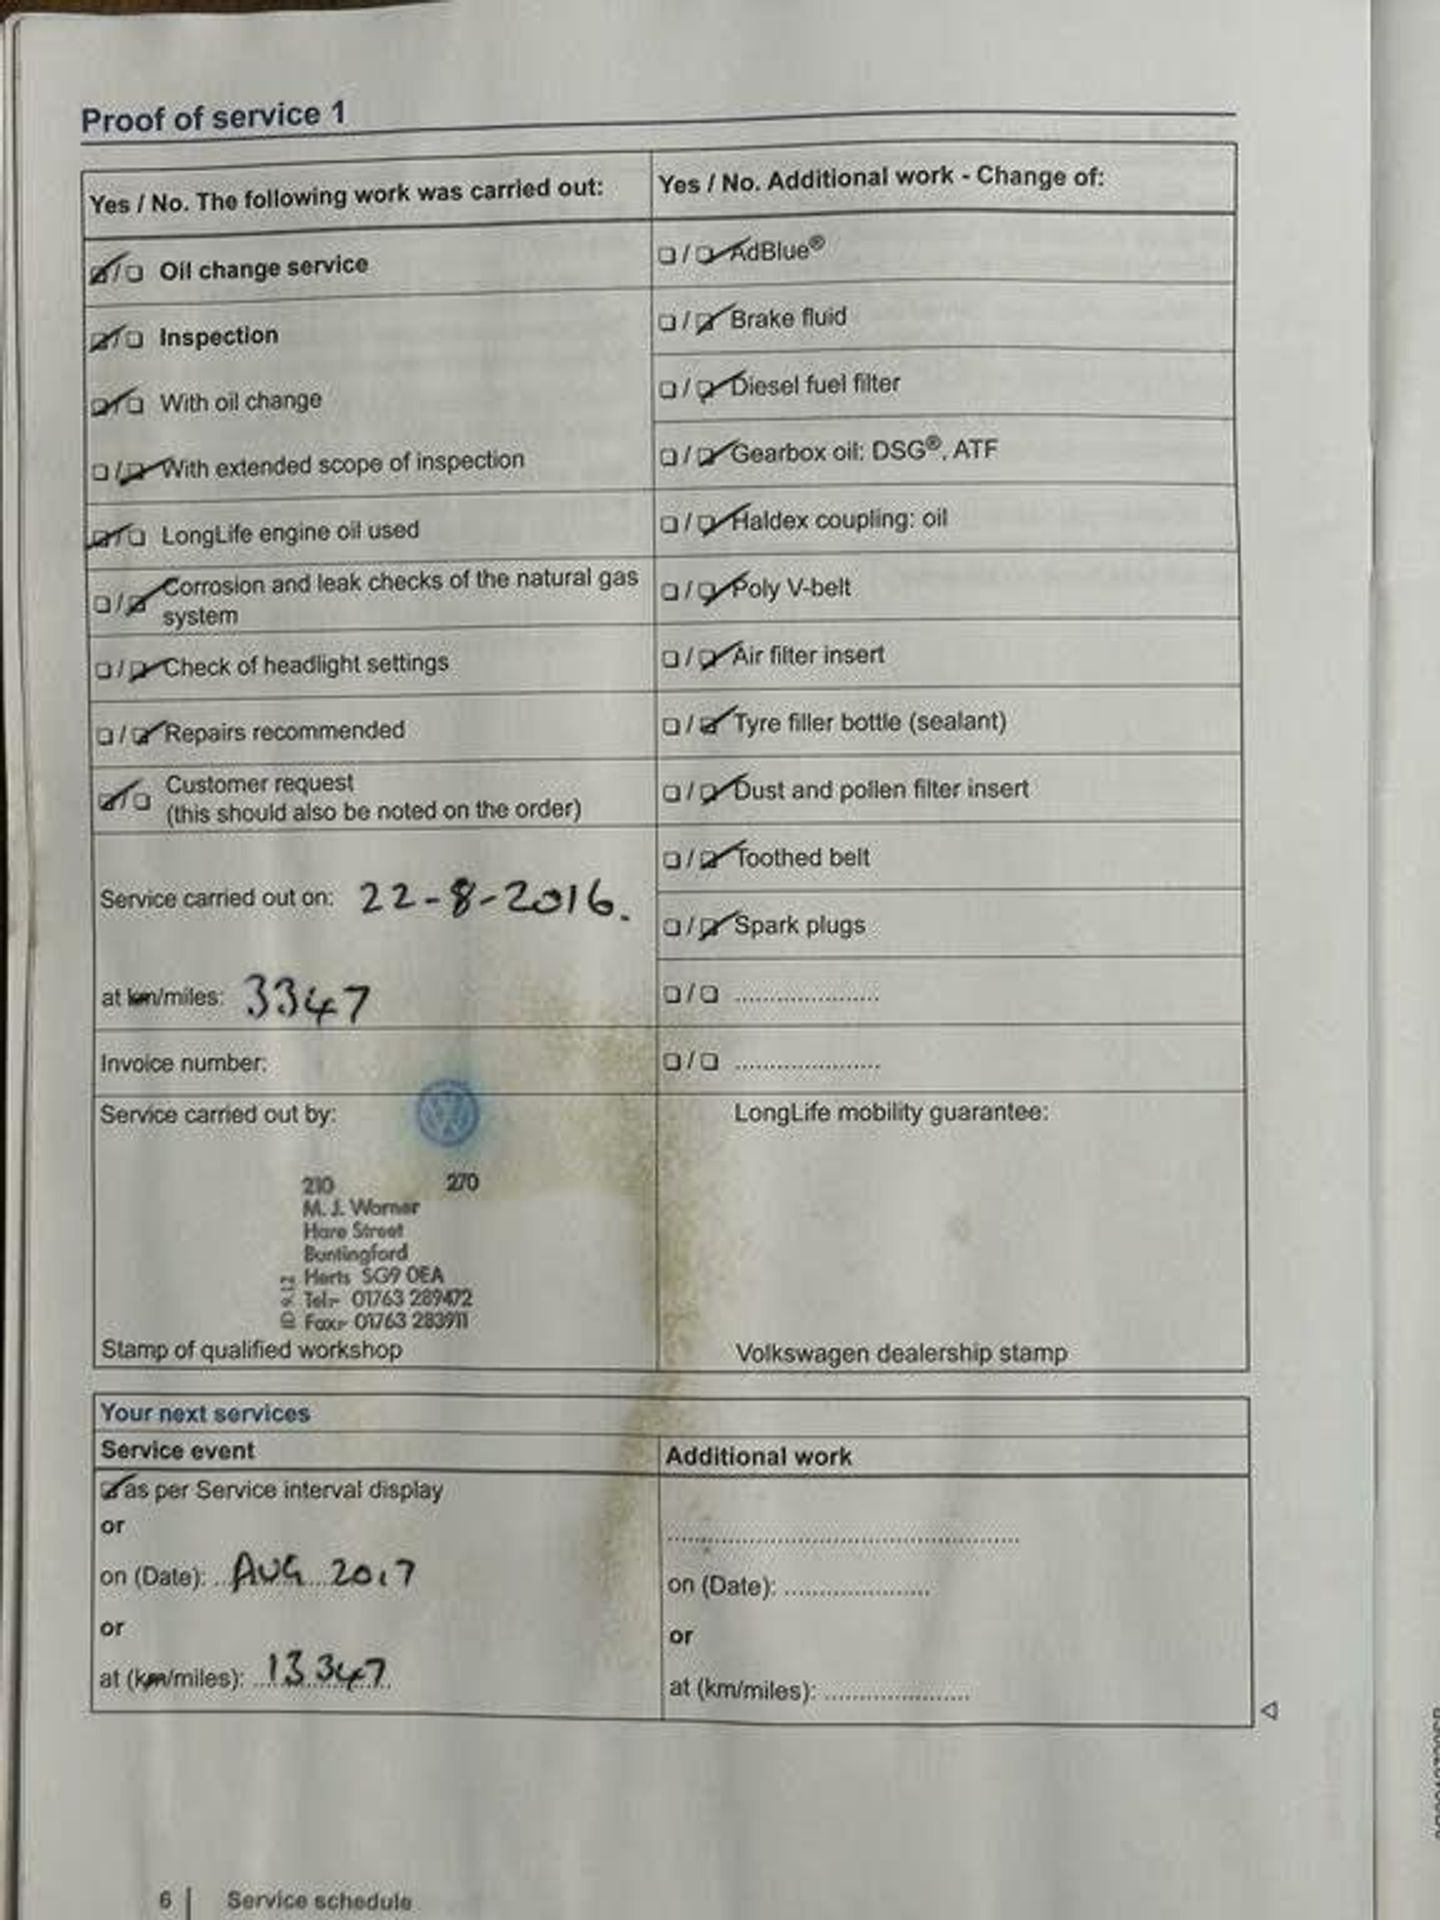 Proof of service 1
Yes / No. The following work was carried out:
Oil change service
Inspection
With oil change
With extended scope of inspection
LongLife engine oil used
Corrosion and leak checks of the natural gas
system
Check of headlight settings
Repairs recommended
Customer request
(this should also be noted on the order)
Service carried out on: 22-8-2016.
at km/miles: 3347
Invoice number:
Service carried out by:
210 270
M. J. Warner
Hare Street
Buntingford
Herts SG9 0EA
Tel:- 01763 289472
Fax:- 01763 283911
Stamp of qualified workshop
Yes / No. Additional work - Change of:
AdBlue®
Brake fluid
Diesel fuel filter
Gearbox oil: DSG®, ATF
Haldex coupling: oil
Poly V-belt
Air filter insert
Tyre filler bottle (sealant)
Dust and pollen filter insert
Toothed belt
Spark plugs
LongLife mobility guarantee:
Volkswagen dealership stamp
Your next services
Service event
as per Service interval display
or
on (Date): AUG 2017
or
at (km/miles): 13347
Additional work
on (Date):
or
at (km/miles):
6 | Service schedule